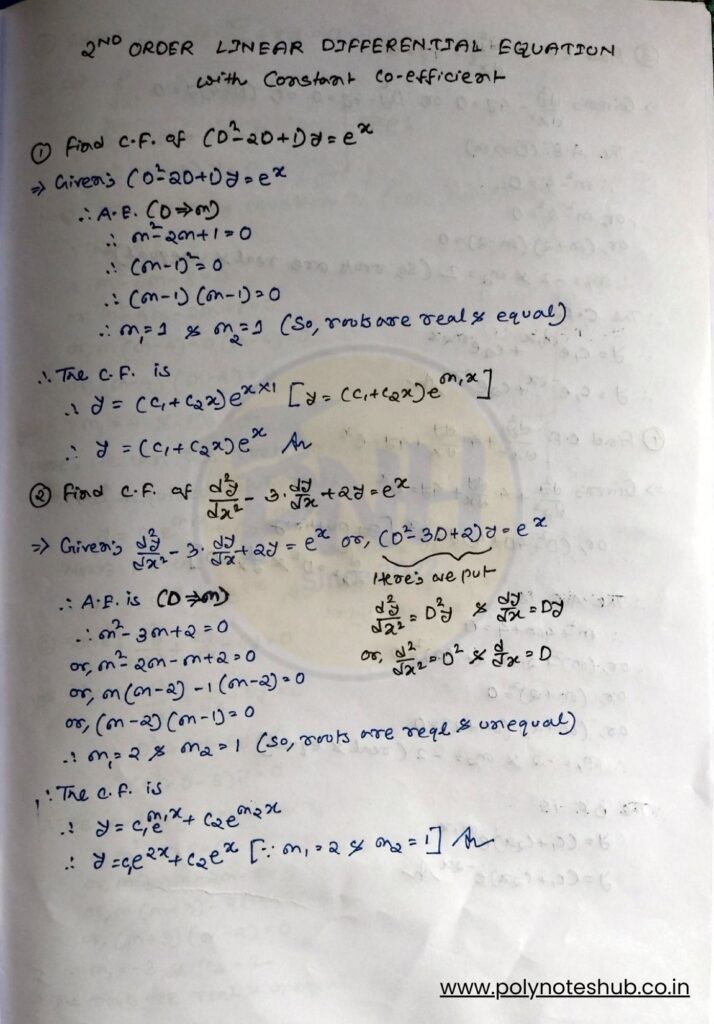 2ND ORDER LINEAR DIFFERENTIAL EQUATION
with Constant co-efficient
① Find C.F. of (D²-2D+1)y = eˣ
⇒ Given:- (D²-2D+1)y = eˣ
∴ A.E. (D⇒m)
∴ m²-2m+1 = 0
∴ (m-1)² = 0
∴ (m-1) (m-1) = 0
∴ m₁ = 1 & m₂ = 1 (So, roots are real & equal)
∴ The C.F. is
∴ y = (c₁+c₂x)eˣˣ¹ [y = (c₁+c₂x)e^m₁x]
∴ y = (c₁+c₂x)eˣ An
② Find C.F. of d²y/dx² - 3.dy/dx + 2y = eˣ
⇒ Given:- d²y/dx² - 3.dy/dx + 2y = eˣ or, (D²-3D+2)y = eˣ
Here:- we put
∴ A.E. is (D⇒m)
d²y/dx² = D²y & dy/dx = Dy
∴ m²-3m+2 = 0
or, d²/dx² = D² & d/dx = D
or, m²-2m-m+2 = 0
or, m(m-2) -1(m-2) = 0
or, (m-2) (m-1) = 0
∴ m₁ = 2 & m₂ = 1 (So, roots are real & unequal)
∴ The C.F. is
∴ y = c₁e^m₁x + c₂e^m₂x
∴ y = c₁e²ˣ + c₂eˣ [∵ m₁ = 2 & m₂ = 1] An
PNH
www.polynoteshub.co.in